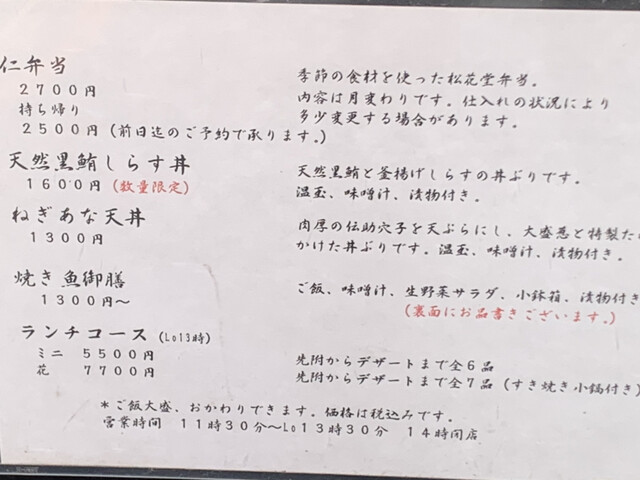 仁弁当
2700円
持ち帰り
2500円(前日迄のご予約で承ります。)
季節の食材を使った松花堂弁当。
内容は月変わりです。仕入れの状況により
多少変更する場合があります。
天然黒鮪しらす丼
1600円(数量限定)
天然黒鮪と釜揚げしらすの丼ぶりです。
温玉、味噌汁、漬物付き。
ねぎあな天丼
1300円
肉厚の伝助穴子を天ぷらにし、大盛葱と特製た
かけた丼ぶりです。温玉、味噌汁、漬物付き。
焼き魚御膳
1300円～
ご飯、味噌汁、生野菜サラダ、小鉢箱、漬物付き
(裏面にお品書きございます。)
ランチコース(Lo13時)
ミニ 5500円
花 7700円
先附からデザートまで全6品
先附からデザートまで全7品(すき焼き小鍋付き)
*ご飯大盛、おかわりできます。価格は税込みです。
営業時間 11時30分～Lo13時30分 14時閉店